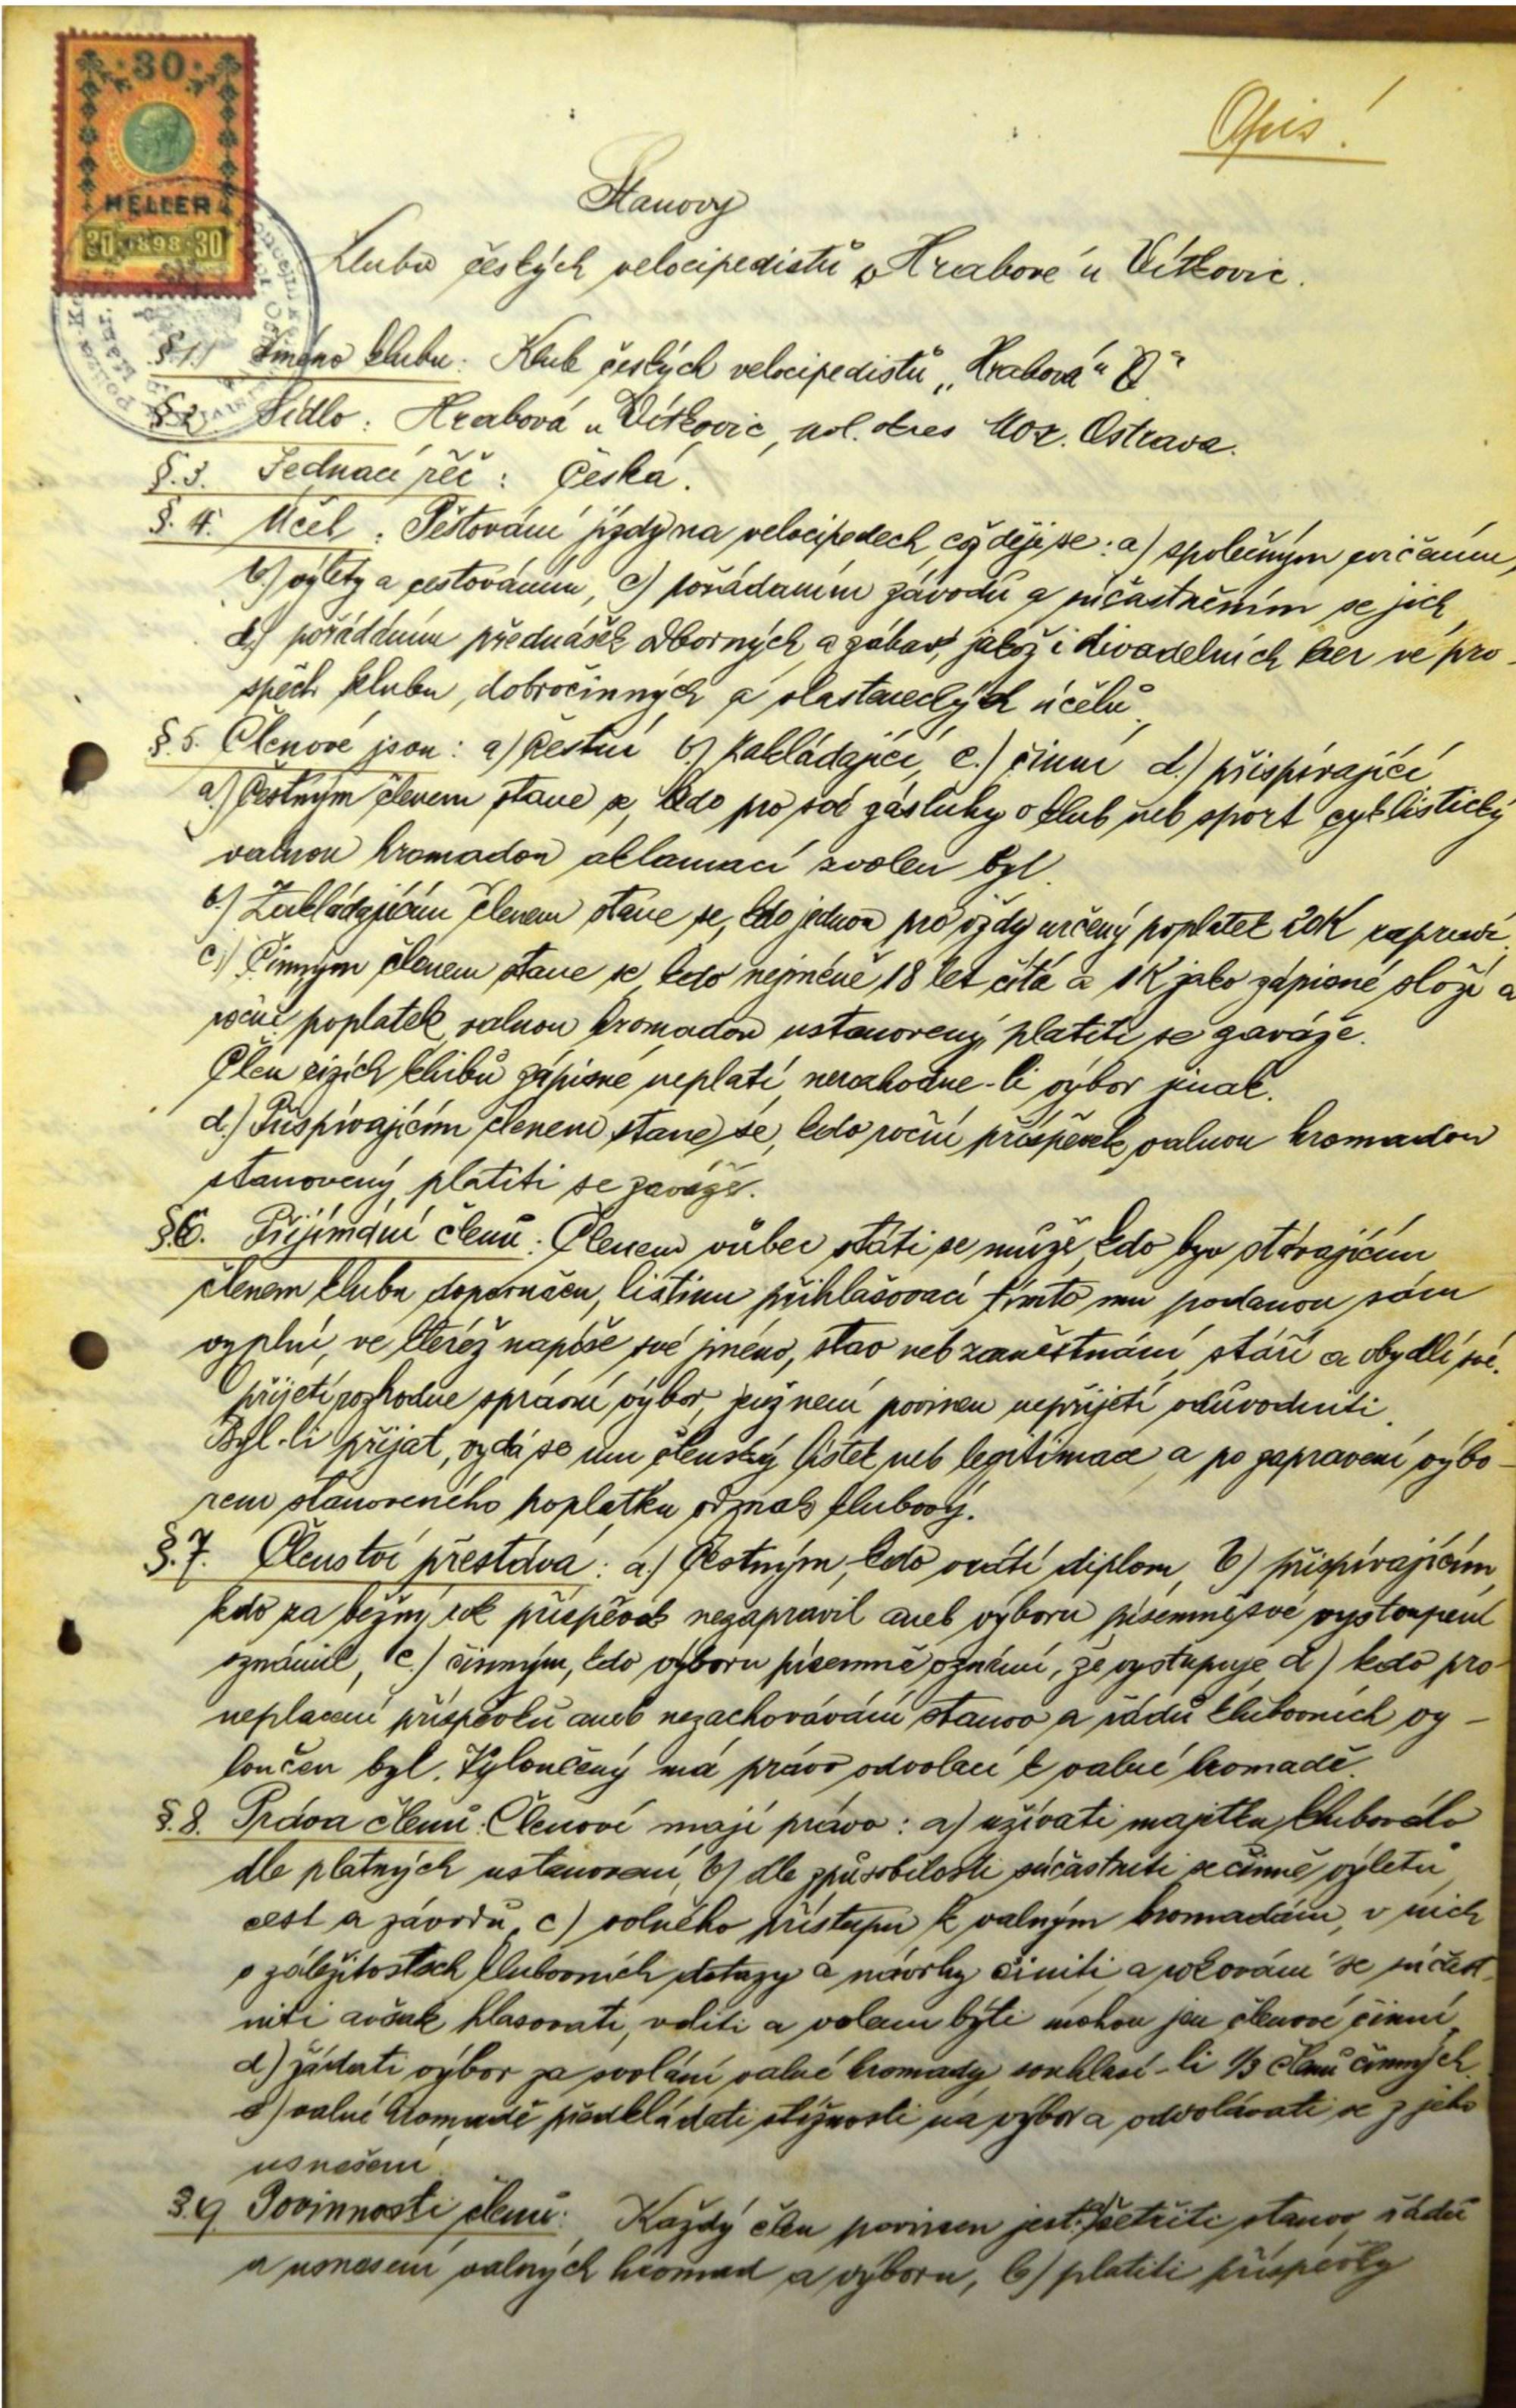 30
HELLER
30 1898 30
Opis!
Stanovy
Klubu českých velocipedistů v Hrabové u Vítkovic.
§ 1. Jméno klubu: Klub českých velocipedistů „Hrabová"
§ 2. Sídlo: Hrabová u Vítkovic, pol. okres Mor. Ostrava.
§. 3. Jednací řeč: Česká.
§. 4. Účel: Pěstování jízdy na velocipedech, což děje se: a) společným cvičením,
b) výlety a cestováním, c) pořádáním závodů a súčastněním se jich,
d) pořádáním přednášek odborných a zábav, jakož i divadelních her ve pro-
spěch klubu, dobročinných a vlasteneckých účelů.
§. 5. Členové jsou: a) Čestní b.) Zakládající, c.) činní d.) přispívající
a.) Čestným členem stane se, kdo pro své zásluhy o klub neb sport cyklistický
valnou hromadou aklamací zvolen byl.
b.) Zakládajícím členem stane se, kdo jednou pro vždy určený poplatek 20K zapraví.
c.) Činným členem stane se kdo nejméně 18 let čítá a 1K jako zápisné složí a
roční poplatek valnou hromadou ustanovený, platiti se zaváže.
Člen cizích klubů zápisné neplatí, nerozhodne-li výbor jinak.
d.) Přispívajícím členem stane se, kdo roční příspěvek valnou hromadou
stanovený platiti se zaváže.
§6. Přijímání členů: Členem vůbec státi se může, kdo byv stávajícím
členem klubu doporučen, listinu přihlašovací tímto mu podanou sám
vyplní, ve kteréž napíše své jméno, stav neb zaměstnání, stáří a obydlí své.
O přijetí rozhodne správní výbor, jenž není povinen nepřijetí odůvodniti.
Byl-li přijat, vydá se mu členský lístek neb legitimace a po zapravení výbo-
rem stanoveného poplatku odznak klubový.
§. 7. Členství přestává: a.) Čestným, kdo vrátí diplom, b) přispívajícím,
kdo za běžný rok příspěvek nezapravil aneb výboru písemně své vystoupení
oznámil, c.) činným, kdo výboru písemně oznámí, že vystupuje, d) kdo pro
neplacení příspěvků aneb nezachovávání stanov a řádů klubovních vy-
loučen byl. Vyloučený má právo odvolací k valné hromadě.
§. 8. Práva členů: Členové mají právo: a) užívati majetku klubového
dle platných ustanovení, b) dle způsobilosti súčastniti se činně výletů,
cest a závodů, c) volného přístupu k valným hromadám, v nich
o záležitostech klubovních dotazy a návrhy činiti a rokování se súčast-
niti avšak hlasovati, voliti a voleni býti mohou jen členové činní,
d) žádati výbor za svolání valné hromady souhlasí-li 1/3 členů činných.
e) valné hromadě předkládati stížnosti na výbor a odvolávati se z jeho
usnešení.
§. 9. Povinnosti členů: Každý člen povinen jest: a) šetřiti stanov, řádů
a usnesení valných hromad a výboru, b) platiti příspěvky